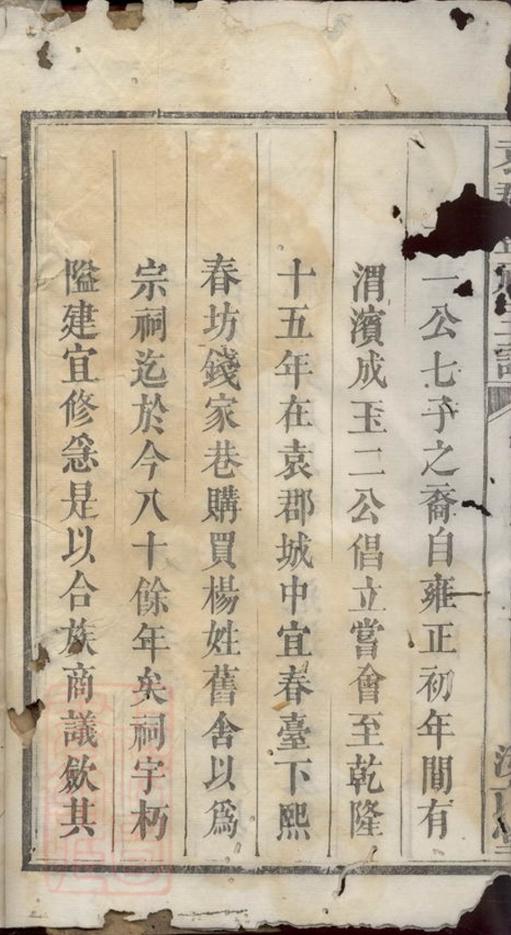 一公七子之裔自雍正初年間有
渭濱成玉二公倡立嘗會至乾隆
十五年在袁郡城中宜春臺下熙
春坊錢家巷購買楊姓舊舍以爲
宗祠迄於今八十餘年矣祠宇朽
隘建宜修急是以合族商議歛其